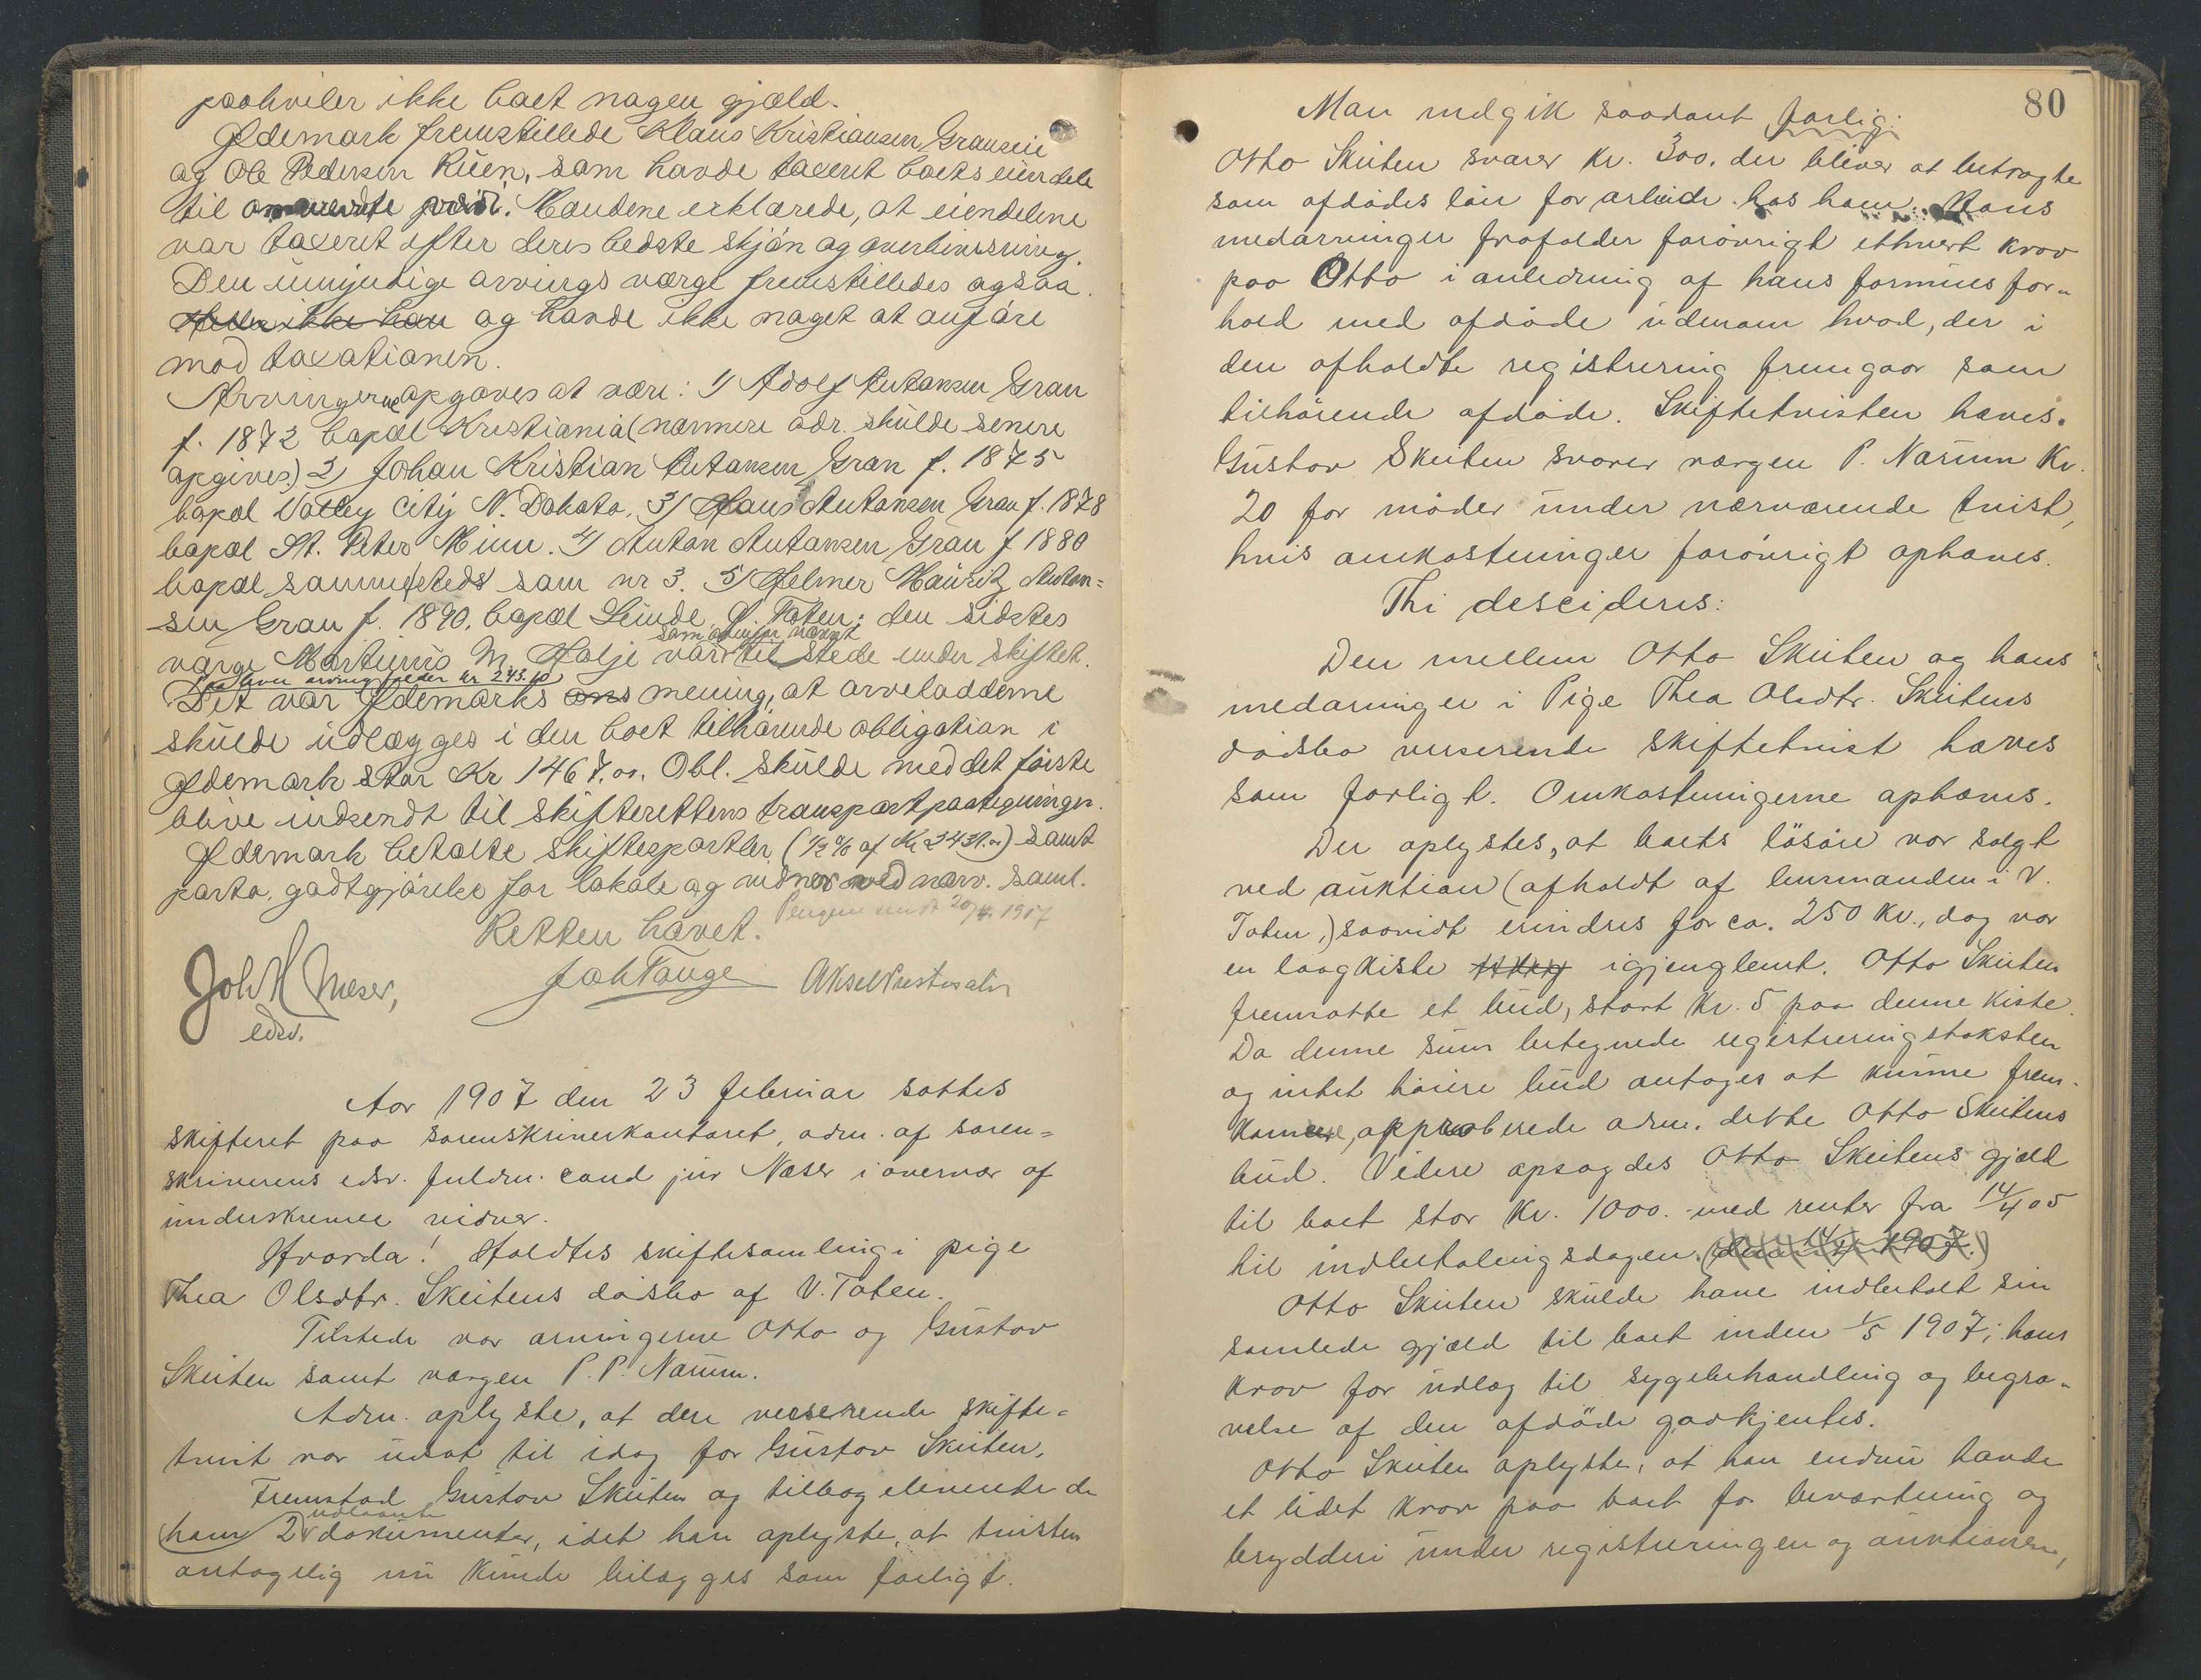 paahviler ikke boet nogen gjæld.
Ødemark fremstillede Klaus Kristiansen Granseie
og Ole Pedersen Rüen, som havde taxeret boets eiendele
til omværdte værdi. Mændene erklærede, at eiendelene
var taxeret efter deres bedste skjøn og overbevisning.
Den umyndige arvings værge fremstilledes ogsaa.
Heller ikke han og havde ikke noget at anføre
mod taxationen.
Arvingerne opgaves at være: 1) Adolf Antonsen Gran
f. 1872 bopæl Kristiania (nærmere adr. skulde senere
opgives) 2) Johan Kristian Antonsen Gran f. 1875
bopæl Valley City N. Dakota, 3) Hans Antonsen Gran f. 1878
bopæl St. Peter Minn. 4) Anton Antonsen Gran f 1880
bopæl sammesteds som nr 3. 5) Helmer Mauritz Anton=
sen Gran f. 1890, bopæl Lunde, Ø. Toten; den sidstes
som ovenfor nævnt
værge Martinius M. Holje var til stede under skiftet.
Paa hver arving falder kr 243.40
Det var Ødemarks ons mening, at arveladderne
skulde udlægges i den boet tilhørende obligation i
Ødemark stor Kr 1467.00. Obl. skulde med det første
blive indsendt til skifterettens transportpaategninger.
Ødemark betalte skiftesportler (½ % af Kr 2431.00) samt
porto, godtgjørelse for lokale og vidner ved nærv. saml.
Pengene sendt 20/4. 1907
Retten hævet.
Joh H Næser,
edsv.
Joh Tange
Aksel Kristosatn
Aar 1907 den 23 februar sattes
skifteret paa sorenskriverkontoret, adm. af soren=
skriverens edsv. fuldm. cand jur Næser i overvær af
underskrevne vidner.
Hvorda! Holdtes skiftesamling i pige
Thea Olsdtr. Skeitens dødsbo af V. Toten.
Tilstede var arvingerne Otto og Gustav
Skeiten samt værgen P. P. Narum.
Adm. oplyste, at den verserende skifte=
tvist var udsat til idag for Gustav Skeiten.
Fremstod Gustav Skeiten og tilbageleverte de
udlaante
ham 2 dokumenter, idet han oplyste, at tvisten
antagelig nu kunde bilægges som forligt.
80
Man indgik saadant forlig:
Otto Skeiten svarer kr. 300. der bliver at betragte
som afdødes løn for arbeide hos ham. Hans
medarvinger frafalder forøvrigt ethvert krav
paa Otto i anledning af hans formuesfor=
hold med afdøde udenom hvad, der i
den afholdte registrering fremgaar som
tilhørende afdøde. Skiftetvisten hæves.
Gustav Skeiten svarer værgen P. Narum Kr.
20 for møder under nærværende tvist,
hvis omkostninger forøvrigt ophæves.
Thi descideres:
Den mellem Otto Skeiten og hans
medarvinger i Pige Thea Olsdtr. Skeitens
dødsbo verserende skiftetvist hæves
som forligt. Omkostningerne ophæves.
Der oplystes, at boets løsøre var solgt
ved auktion (afholdt af lensmanden i V.
Toten,) saavidt erindres for ca. 250 kr., dog var
en laagkiste igjenglemt. Otto Skeiten
fremsatte et bud, stort kr. 5 paa denne kiste.
Da denne sum betegnede registreringstaksten
og intet høiere bud antages at kunne frem-
komme, approberede adm. dette Otto Skeitens
bud. Videre opsagdes Otto Skeitens gjæld
til boet stor kr. 1000. med renter fra 14/4 05
til indbetalingsdagen. (den 14/4 1907.)
Otto Skeiten skulde have indbetalt sin
samlede gjæld til boet inden 1/5 1907; hans
krav for udlæg til sygebehandling og begra-
velse af den afdøde godkjentes.
Otto Skeiten oplyste, at han endnu havde
et lidet krav paa boet for bevertning og
brydderi under registreringen og auktionen,